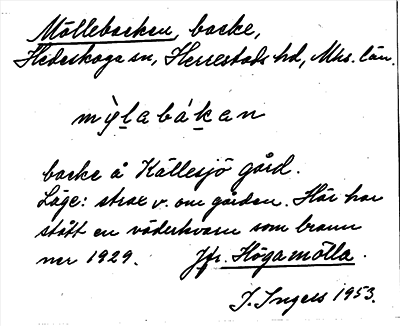 Möllebacken, backe,
Hedeskoga sn, Herrestads hd, Mhs. län.
mỳlabákan
backe å Källesjö gård.
Läge: strax v. om gården. Här har
stått en väderkvarn som brann
ner 1929. Jfr. Högamölla.
I. Ingers 1953.